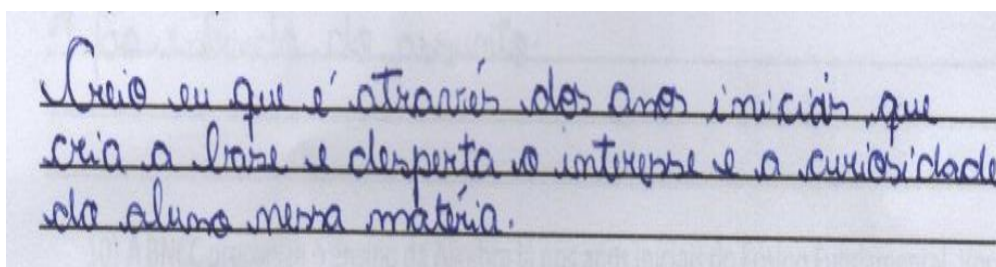 Creio eu que é através dos anos iniciais que
cria a base e desperta o interesse e a curiosidade
do aluno nessa matéria.